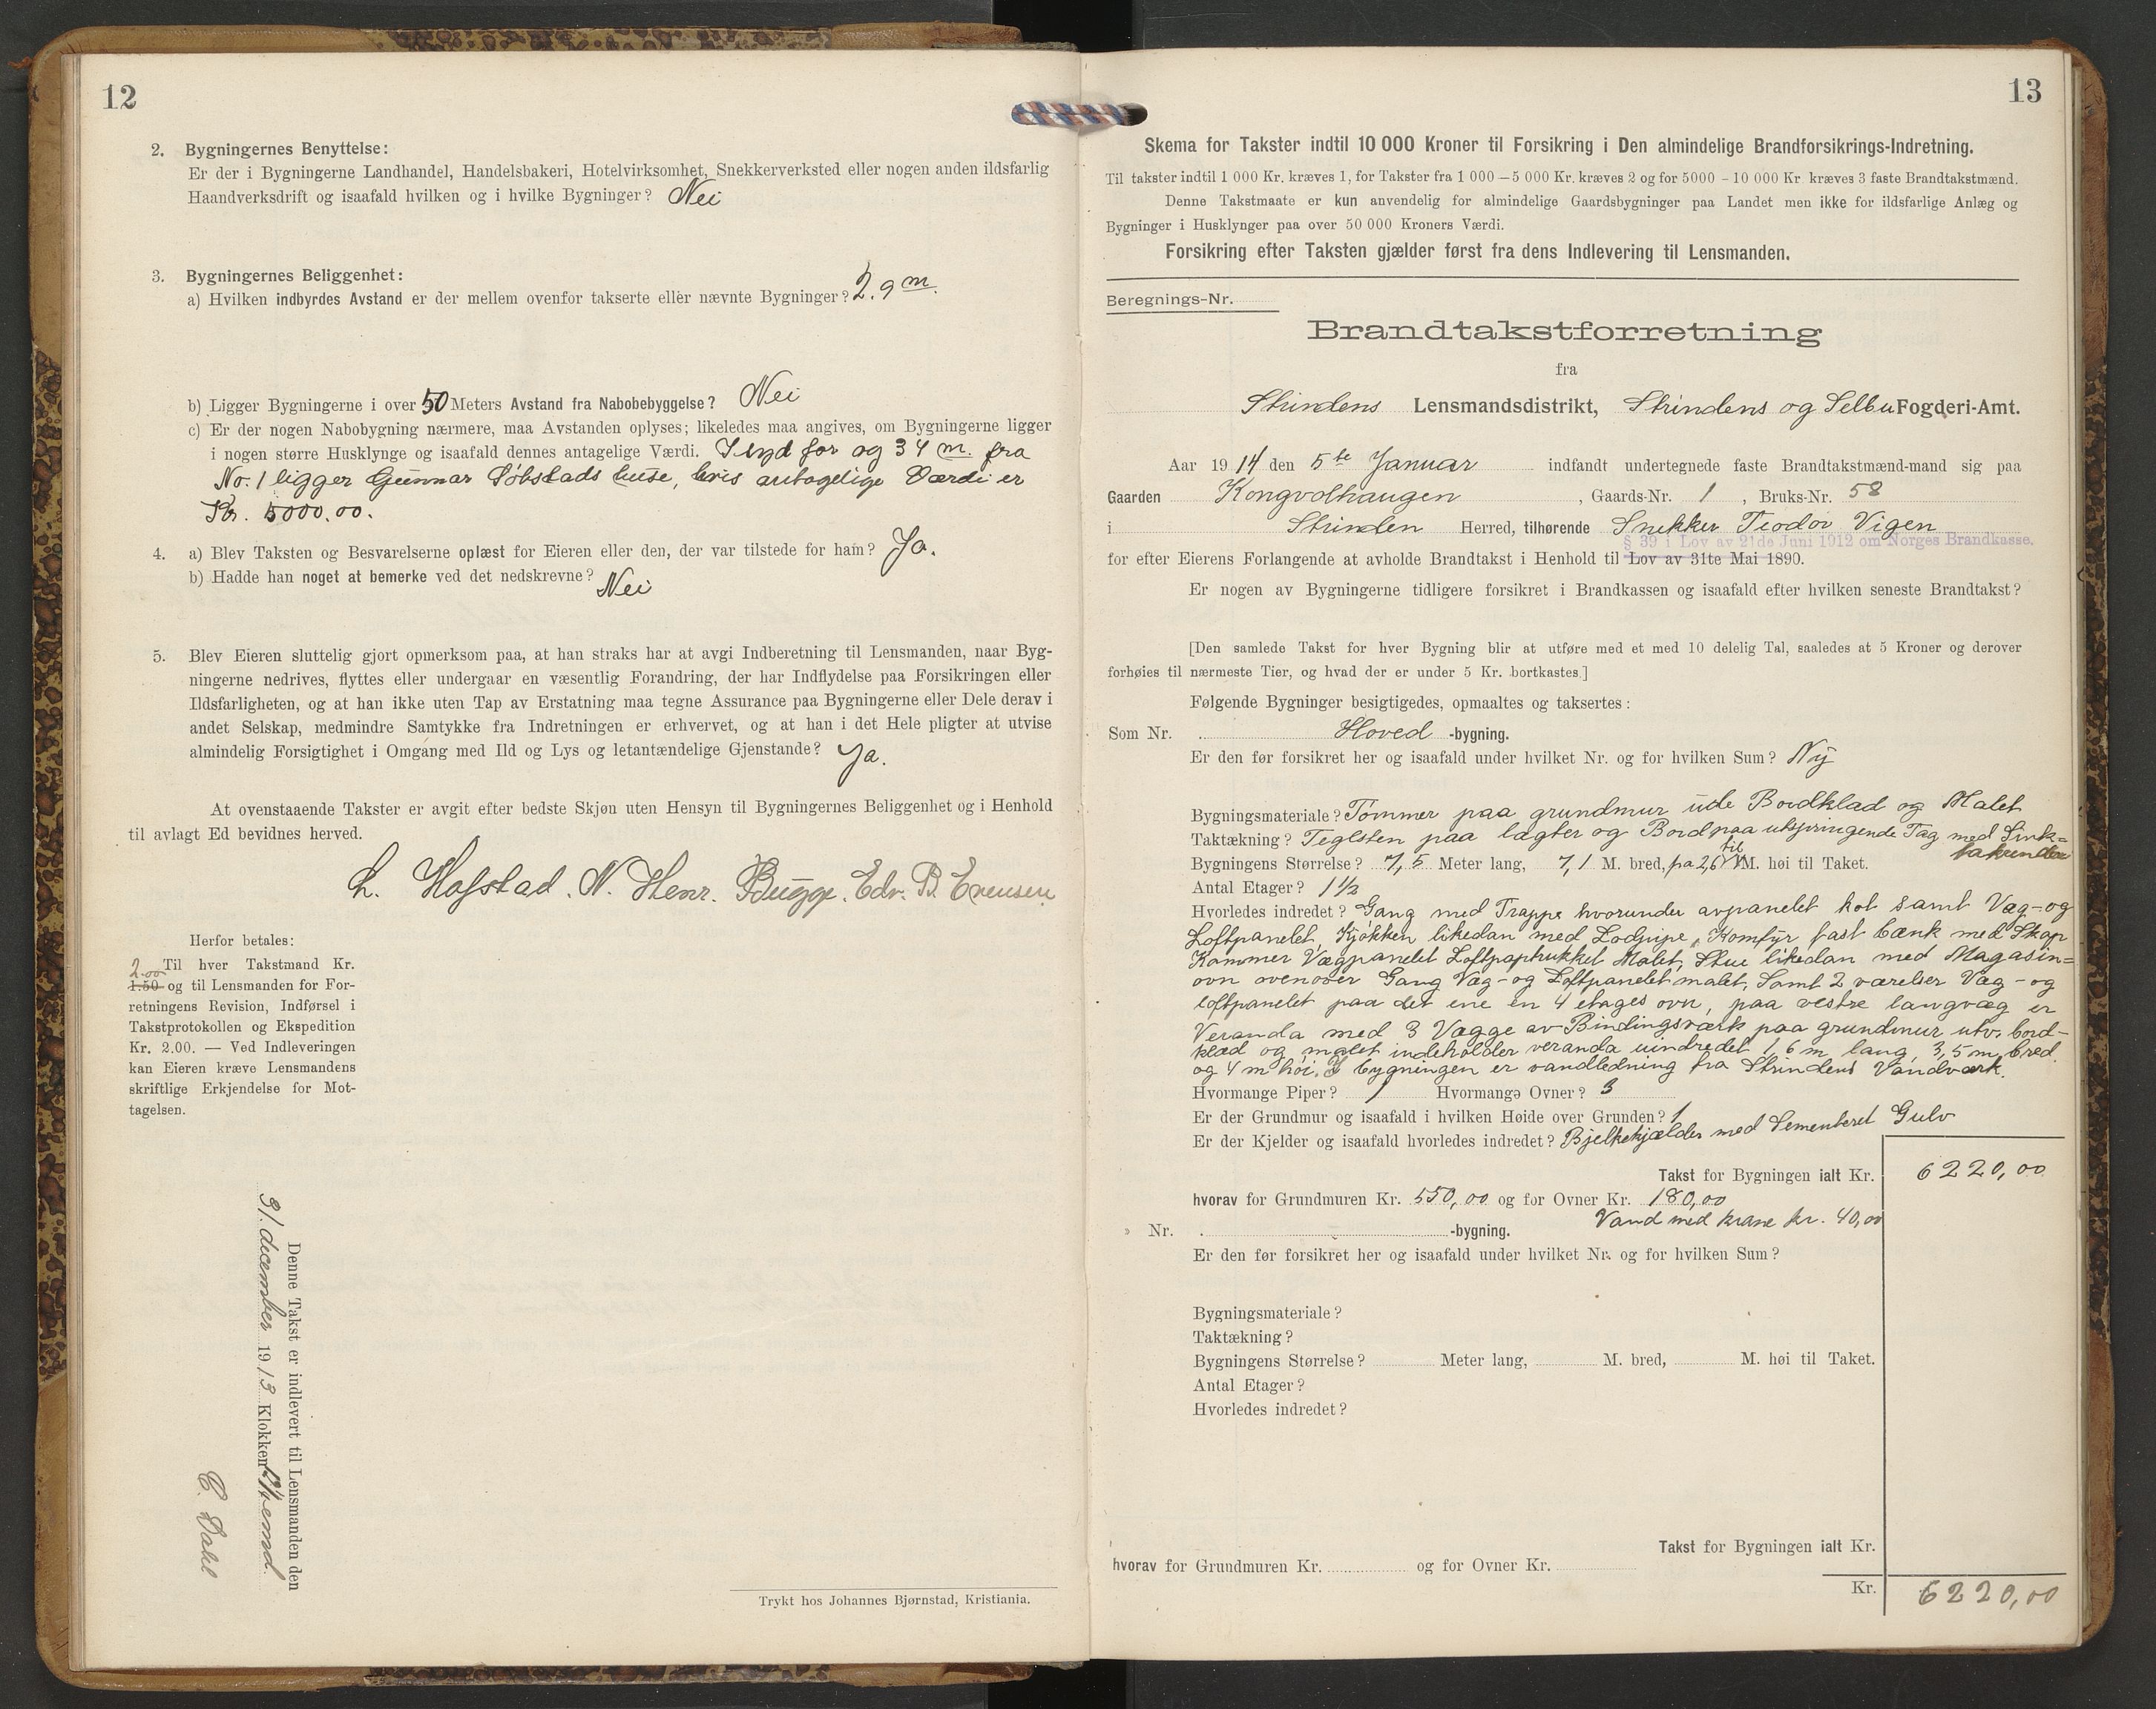 12
2. Bygningernes Benyttelse:
Er der i Bygningerne Landhandel, Handelsbakeri, Hotelvirksomhet, Snekkerverksted eller nogen anden ildsfarlig
Haandverksdrift og isaafald hvilken og i hvilke Bygninger? Nei
3. Bygningernes Beliggenhet:
a) Hvilken indbyrdes Avstand er der mellem ovenfor takserte eller nævnte Bygninger? 2.9 m.
b) Ligger Bygningerne i over 50 Meters Avstand fra Nabobebyggelse? Nei
c) Er der nogen Nabobygning nærmere, maa Avstanden oplyses; likeledes maa angives, om Bygningerne ligger
i nogen større Husklynge og isaafald dennes antagelige Værdi. I syd for og 34 m. fra
No. 1 ligger Gunnar Sóbstads huse, hvis antagelige Værdi er
Kr. 5000.00.
4. a) Blev Taksten og Besvarelserne oplæst for Eieren eller den, der var tilstede for ham? Ja.
b) Hadde han noget at bemerke ved det nedskrevne? Nei
5. Blev Eieren sluttelig gjort opmerksom paa, at han straks har at avgi Indberetning til Lensmanden, naar Byg-
ningerne nedrives, flyttes eller undergaar en væsentlig Forandring, der har Indflydelse paa Forsikringen eller
Ildsfarligheten, og at han ikke uten Tap av Erstatning maa tegne Assurance paa Bygningerne eller Dele derav i
andet Selskap, medmindre Samtykke fra Indretningen er erhvervet, og at han i det Hele pligter at utvise
almindelig Forsigtighet i Omgang med Ild og Lys og letantændelige Gjenstande? Ja.
At ovenstaaende Takster er avgit efter bedste Skjøn uten Hensyn til Bygningernes Beliggenhet og i Henhold
til avlagt Ed bevidnes herved.
L. Hofstad. N. Henr. Bugge. Edv. B. Evensen
Herfor betales:
2.00 Til hver Takstmand Kr.
1.50 og til Lensmanden for For-
retningens Revision, Indførsel i
Takstprotokollen og Ekspedition
Kr. 2.00. — Ved Indleveringen
kan Eieren kræve Lensmandens
skriftlige Erkjendelse for Mot-
tagelsen.
Denne Takst er indlevert til Lensmanden den
31. december 1913 Klokken emd.
C. Dahl
Trykt hos Johannes Bjørnstad, Kristiania.
13
Skema for Takster indtil 10 000 Kroner til Forsikring i Den almindelige Brandforsikrings-Indretning.
Til takster indtil 1 000 Kr. kræves 1, for Takster fra 1 000 – 5 000 Kr. kræves 2 og for 5000 – 10 000 Kr kræves 3 faste Brandtakstmænd.
Denne Takstmaate er kun anvendelig for almindelige Gaardsbygninger paa Landet men ikke for ildsfarlige Anlæg og
Bygninger i Husklynger paa over 50 000 Kroners Værdi.
Forsikring efter Taksten gjælder først fra dens Indlevering til Lensmanden.
Beregnings-Nr.
Brandtakstforretning
fra
Strindens Lensmandsdistrikt, Strindens og Selbu Fogderi-Amt.
Aar 1914 den 5te Januar indfandt undertegnede faste Brandtakstmænd-mand sig paa
Gaarden Kongvolhaugen, Gaards-Nr. 1, Bruks-Nr. 58
i Strinden Herred, tilhørende Snekker Teodor Vigen
§ 39 i Lov av 21de Juni 1912 om Norges Brandkasse.
for efter Eierens Forlangende at avholde Brandtakst i Henhold til Lov av 31te Mai 1890.
Er nogen av Bygningerne tidligere forsikret i Brandkassen og isaafald efter hvilken seneste Brandtakst?
[Den samlede Takst for hver Bygning blir at utføre med et med 10 delelig Tal, saaledes at 5 Kroner og derover
forhøies til nærmeste Tier, og hvad der er under 5 Kr. bortkastes.]
Følgende Bygninger besigtigedes, opmaaltes og taksertes:
Som Nr. Hoved-bygning.
Er den før forsikret her og isaafald under hvilket Nr. og for hvilken Sum? Ny
Bygningsmateriale? Tømmer paa grundmur ude Bordklad og Malet
Taktækning? Teglsten paa lægter og Bord paa utspringende Tag med Sink-
takrender
Bygningens Størrelse? 7,5 Meter lang, 7,1 M. bred, fra 2,6 til M. høi til Taket.
Antal Etager? 1½
Hvorledes indredet? Gang med Trappe hvorunder avpanelet kot samt Væg- og
Loftpanelet, Kjøkken likedan med Lodpipe, Komfyr fast bænk med Skap
Kammer Vægpanelet Loftpaptrukket Malet, Stue likedan med Magasin-
ovn ovenover Gang Væg- og Loftpanelet malet, Samt 2 værelser Væg- og
loftpanelet paa det ene en 4 etages ovn, paa vestre langvæg er
Veranda med 3 Vægge av Bindingsværk paa grundmur utv. bord-
klæd og malet indeholder veranda uindredet 1,6 m. lang, 3,5 m. bred.
og 4 m høi. I bygningen er vandledning fra Strindens Vandværk.
Hvormange Piper? 1 Hvormange Ovner? 3
Er der Grundmur og isaafald i hvilken Høide over Grunden? 1
Er der Kjelder og isaafald hvorledes indredet? Bjelkekjælder med Sementeret Gulv
Takst for Bygningen ialt Kr. 6220,00
hvorav for Grundmuren Kr. 550,00 og for Ovner Kr. 180,00
Vand med krane kr. 40,00
Nr. -bygning.
Er den før forsikret her og isaafald under hvilket Nr. og for hvilken Sum?
Bygningsmateriale?
Taktækning?
Bygningens Størrelse? Meter lang, M. bred, M. høi til Taket.
Antal Etager?
Hvorledes indredet?
Takst for Bygningen ialt Kr.
hvorav for Grundmuren Kr. og for Ovner Kr.
Kr. 6220,00